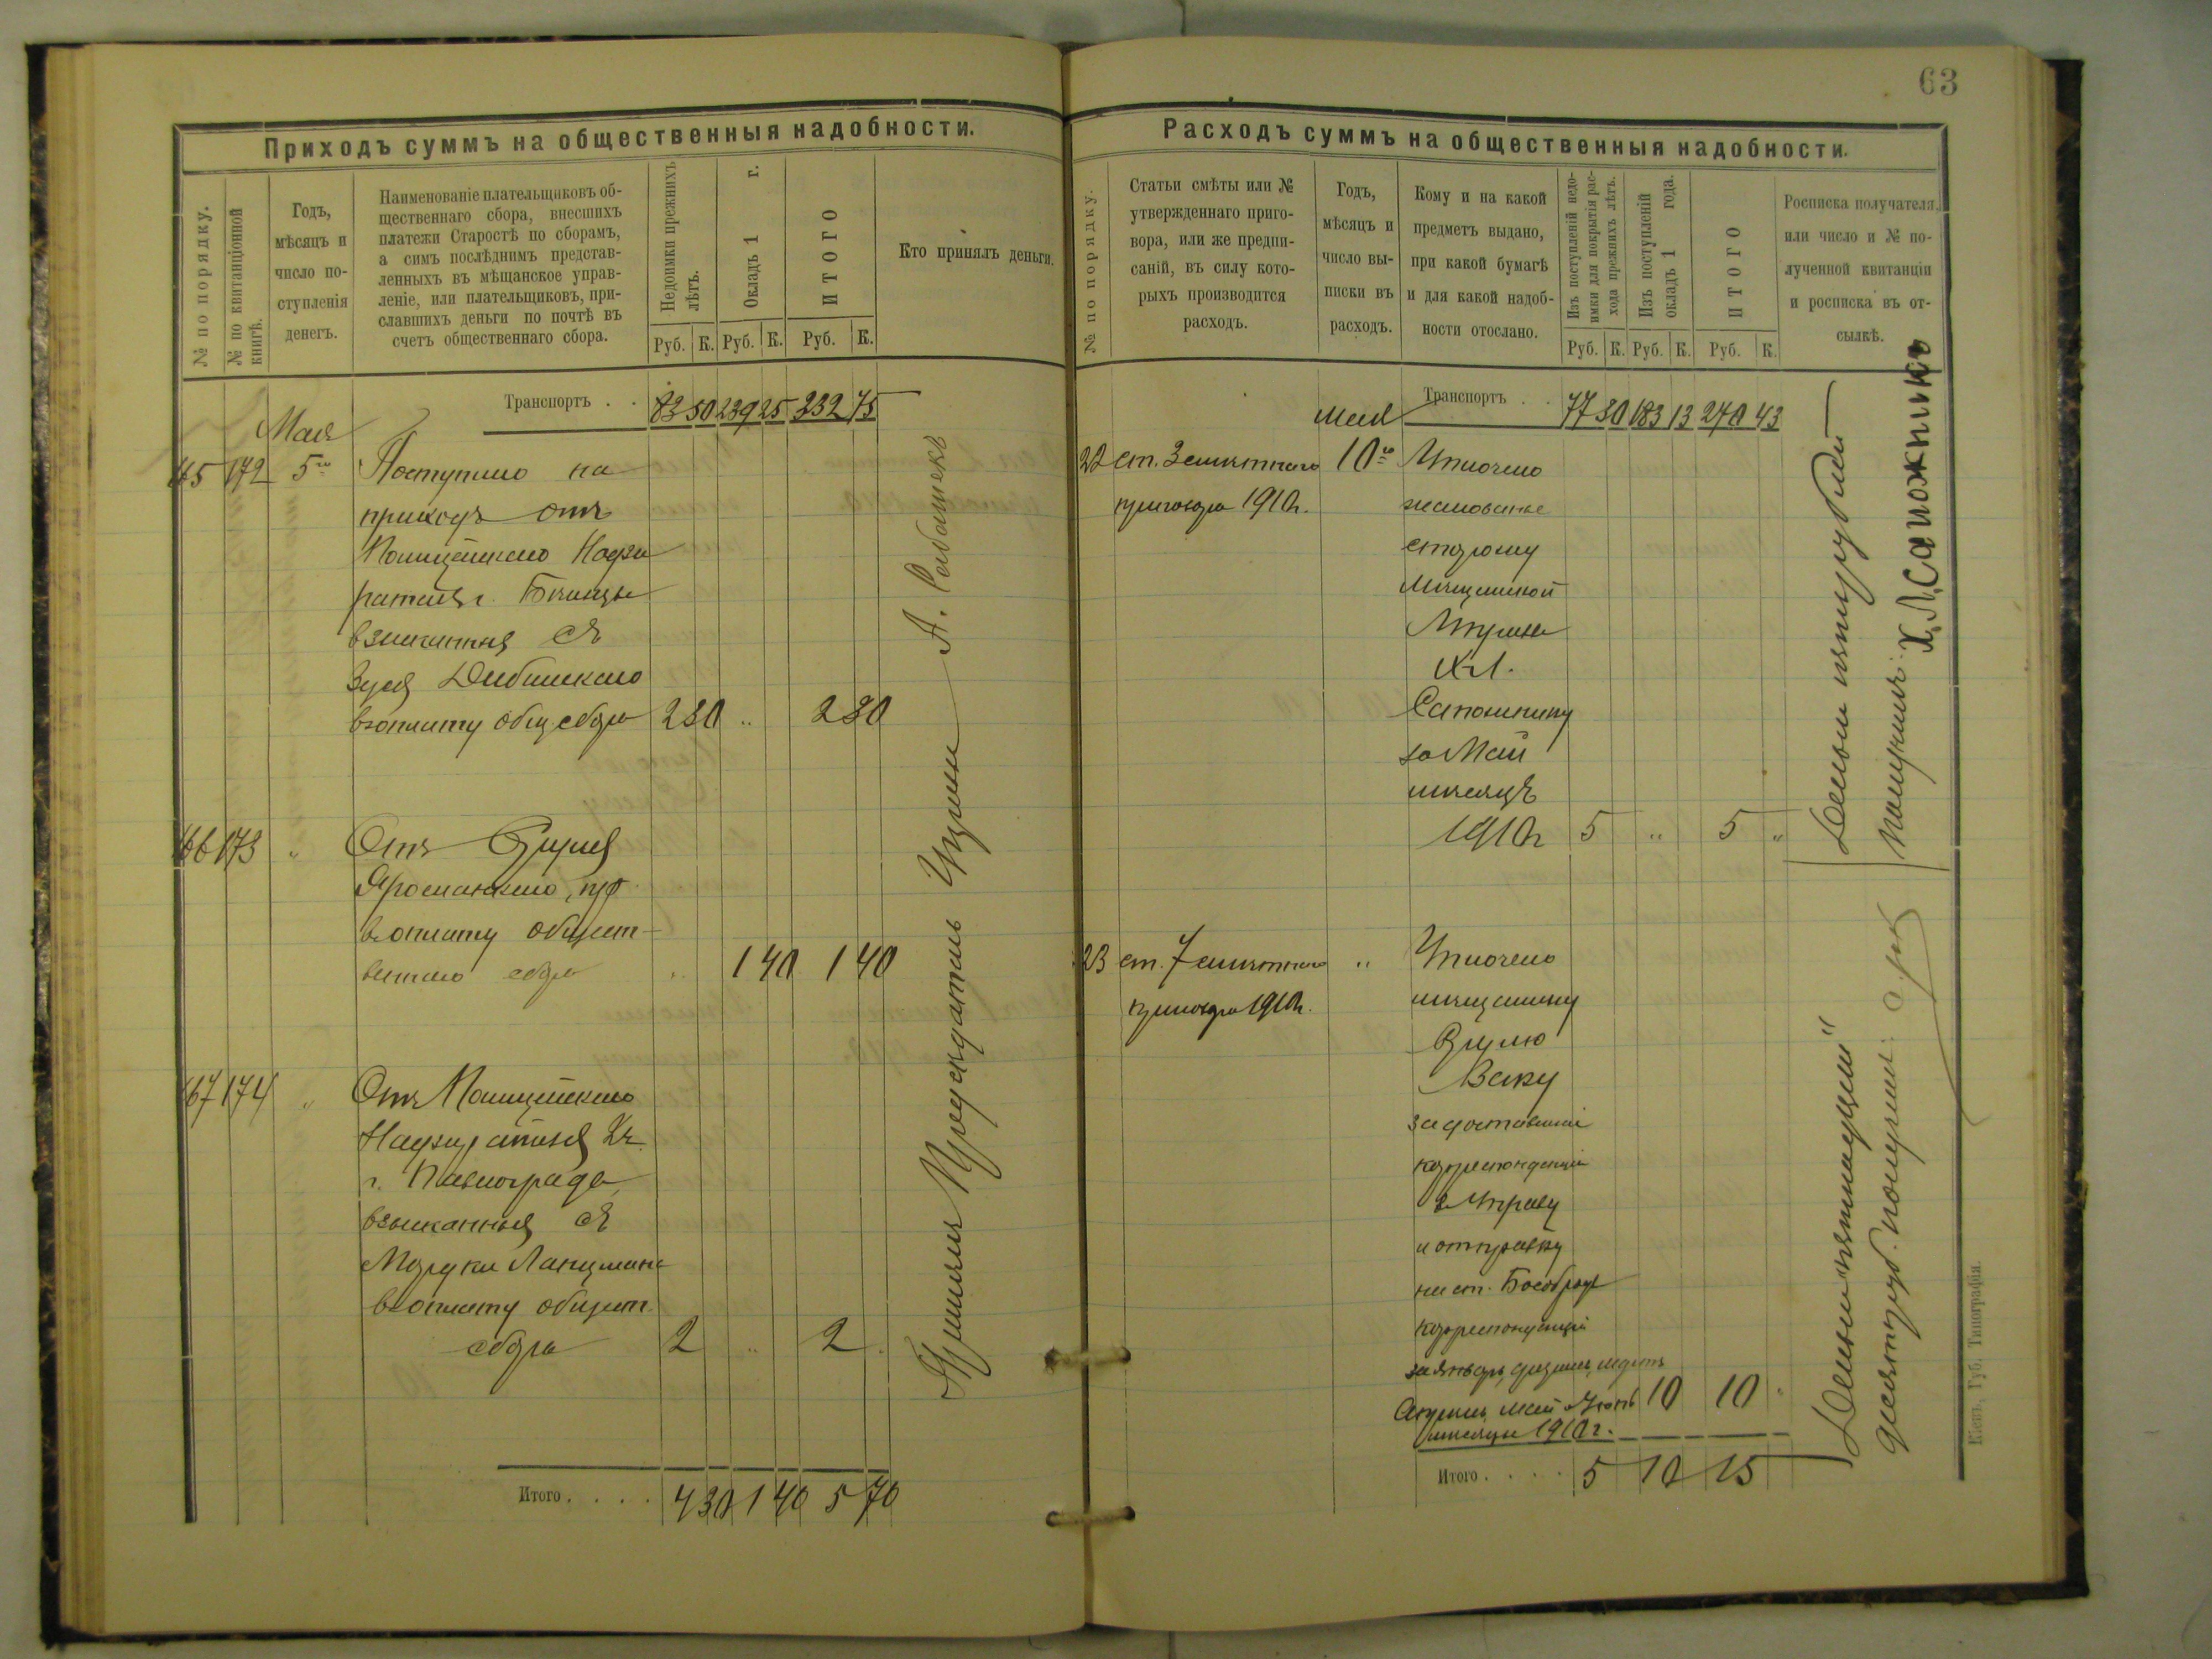 63
Приходъ суммъ на общественныя надобности.
№ по порядку.
№ по квитанціонной
книгѣ.
Годъ,
мѣсяцъ и
число по-
ступленія
денегъ.
Наименованіе плательщиковъ об-
щественнаго сбора, внесшихъ
платежи Старостѣ по сборамъ,
а симъ послѣднимъ представ-
ленныхъ въ мѣщанское управ-
леніе, или плательщиковъ, при-
славшихъ деньги по почтѣ въ
счетъ общественнаго сбора.
Недоимки прежнихъ
лѣтъ.
Окладъ 1 г.
ИТОГО
Руб. К. Руб. К. Руб. К.
Кто принялъ деньги.
Транспортъ . . 83 50 239 25 332 75
Мая
165 172 5го Поступило на
приходъ отъ
Полицейскаго Надзи
рателя г.
взысканныя съ
Зуся
въ оплату общ. сбора 2 80 „ 2 80
166 173 „ Отъ Сруля
въ оплату обществ-
веннаго сбора „ 1 40 1 40
167 174 „ Отъ Полицейскаго
Надзирателя
г. Павлограда
взысканныя съ
въ оплату обществ.
сбора 2 „ 2
Итого . . . . 4 80 1 40 5 70
Принялъ Предсѣдатель
Расходъ суммъ на общественныя надобности.
№ по порядку.
Статьи смѣты или №
утвержденнаго приго-
вора, или же предпи-
саній, въ силу кото-
рыхъ производится
расходъ.
Годъ,
мѣсяцъ и
число вы-
писки въ
расходъ.
Кому и на какой
предметъ выдано,
при какой бумагѣ
и для какой надоб-
ности отослано.
Изъ поступленій недо-
имки для покрытія рас-
хода прежнихъ лѣтъ.
Изъ поступленій
окладъ 1 года.
ИТОГО
Руб. К. Руб. К. Руб. К.
Росписка получателя,
или число и № по-
лученной квитанціи
и росписка въ от-
сылкѣ.
Мая Транспортъ . . 77 30 183 13 270 43
22 ст. 3 смѣтнаго 10го Уплочено
приговора 1910г. жалованье
сторожу
Мѣщанской
Управы
Х. Л.
Сапожнику
за Май
мѣсяцъ
1910г 5 „ 5 „
Деньги пять рублей
получилъ: Х. Л. Сапожникъ
23 ст. 7 смѣтнаго „ Уплочено
приговора 1910г. мѣщанину
Срулю
за доставленіе
корреспонденціи
въ Управу
и отправку
на ст.
корреспонденціи
за Январь, Февраль, Мартъ
Апрѣль, Май и Іюнь 10 10 „
мѣсяцы 1910г.
Итого . . . . 5 10 15
десять руб. получилъ:
Кіевъ, Губ. Типографія.